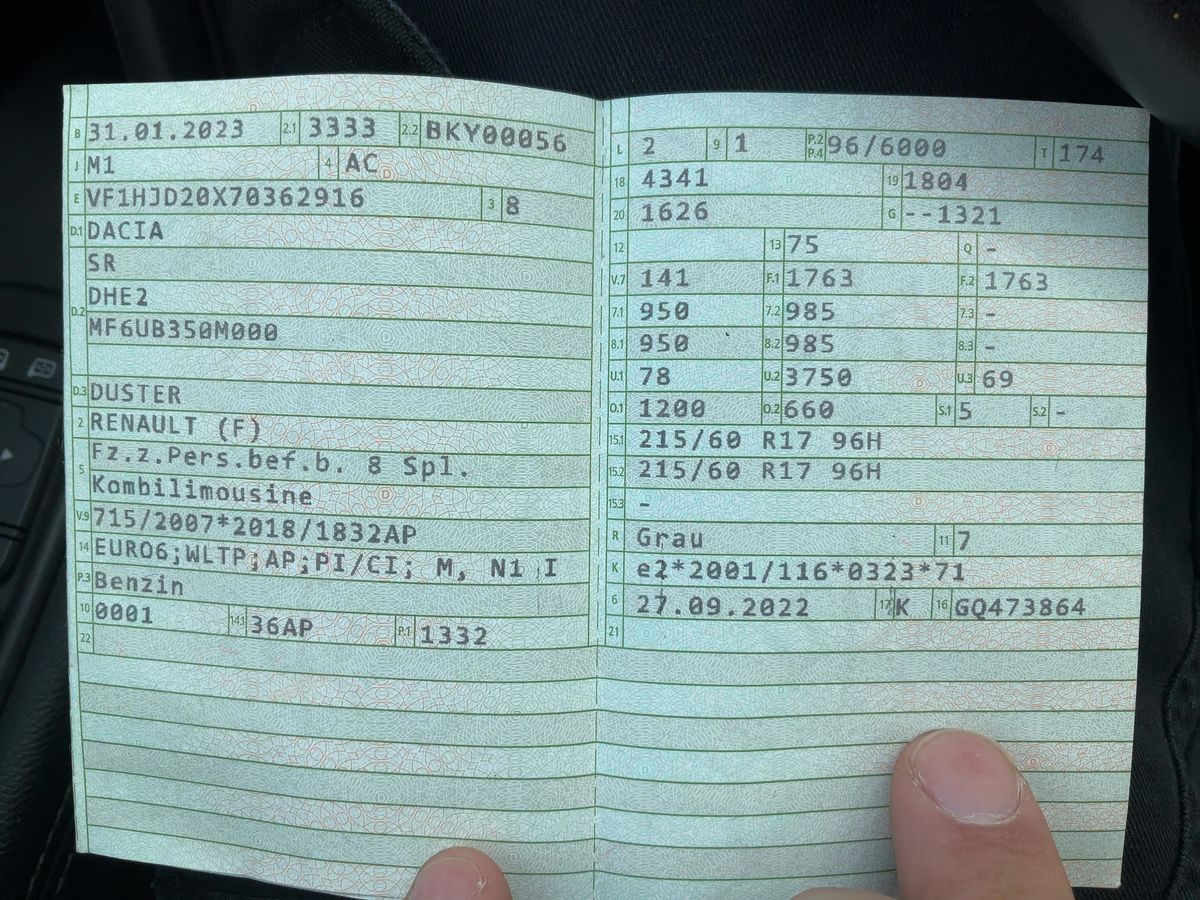 B 31.01.2023 2.1 3333 2.2 BKY00056
J M1 4 AC
E VF1HJD20X70362916 3 8
D.1 DACIA
SR
D.2 DHE2
MF6UB350M000
D.3 DUSTER
2 RENAULT (F)
5 Fz.z.Pers.bef.b. 8 Spl.
Kombilimousine
V.9 715/2007*2018/1832AP
14 EURO6;WLTP;AP;PI/CI; M, N1 I
P.3 Benzin
10 0001 14.1 36AP P.1 1332
22
L 2 9 1 P.2 P.4 96/6000 T 174
18 4341 19 1804
20 1626 G --1321
12 13 75 Q -
V.7 141 F.1 1763 F.2 1763
7.1 950 7.2 985 7.3 -
8.1 950 8.2 985 8.3 -
U.1 78 U.2 3750 U.3 69
O.1 1200 O.2 660 S.1 5 S.2 -
15.1 215/60 R17 96H
15.2 215/60 R17 96H
15.3 -
R Grau 11 7
K e2*2001/116*0323*71
6 27.09.2022 17 K 16 GQ473864
21